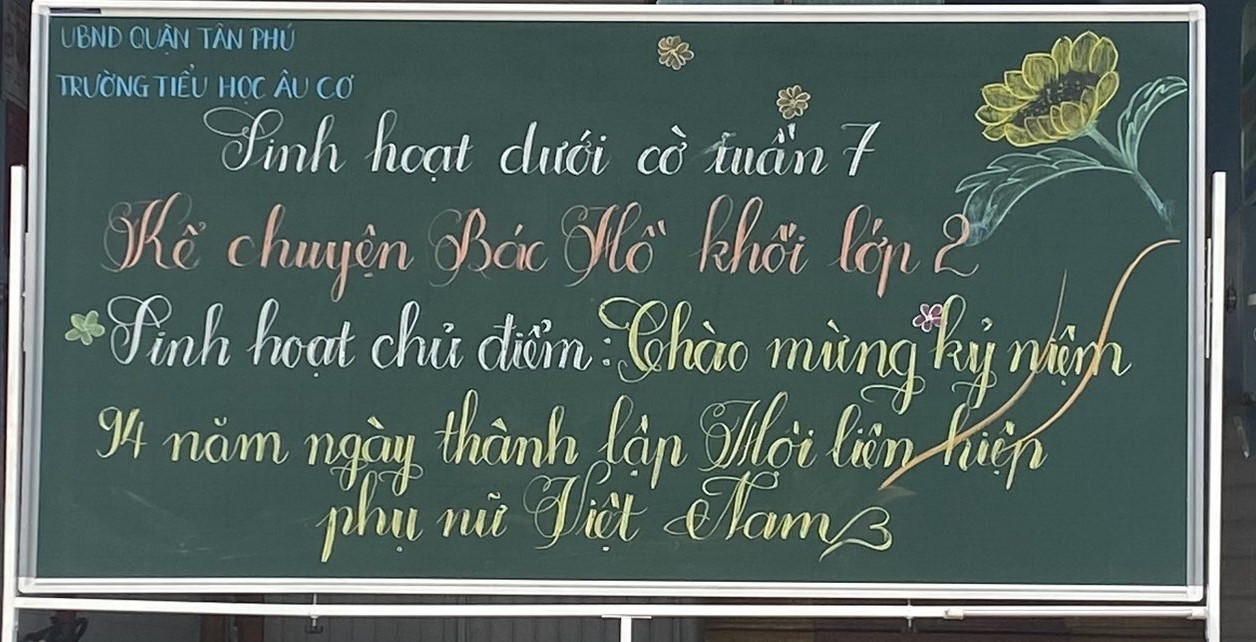 UBND QUẬN TÂN PHÚ
TRƯỜNG TIỂU HỌC ÂU CƠ
Sinh hoạt dưới cờ tuần 7
Kể chuyện Bác Hồ khối lớp 2
Sinh hoạt chủ điểm: Chào mừng kỷ niệm
94 năm ngày thành lập Hội liên hiệp
phụ nữ Việt Nam